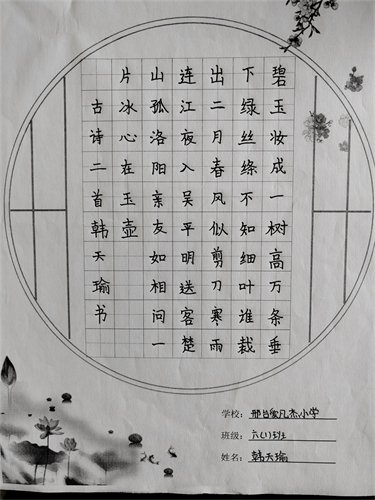 碧玉妆成一树高万条垂
下绿丝绦不知细叶谁裁
出二月春风似剪刀寒雨
连江夜入吴平明送客楚
山孤洛阳亲友如相问一
片冰心在玉壶
古诗二首韩天瑜书
学校：邢台凡杰小学
班级：六(1)班
姓名：韩天瑜